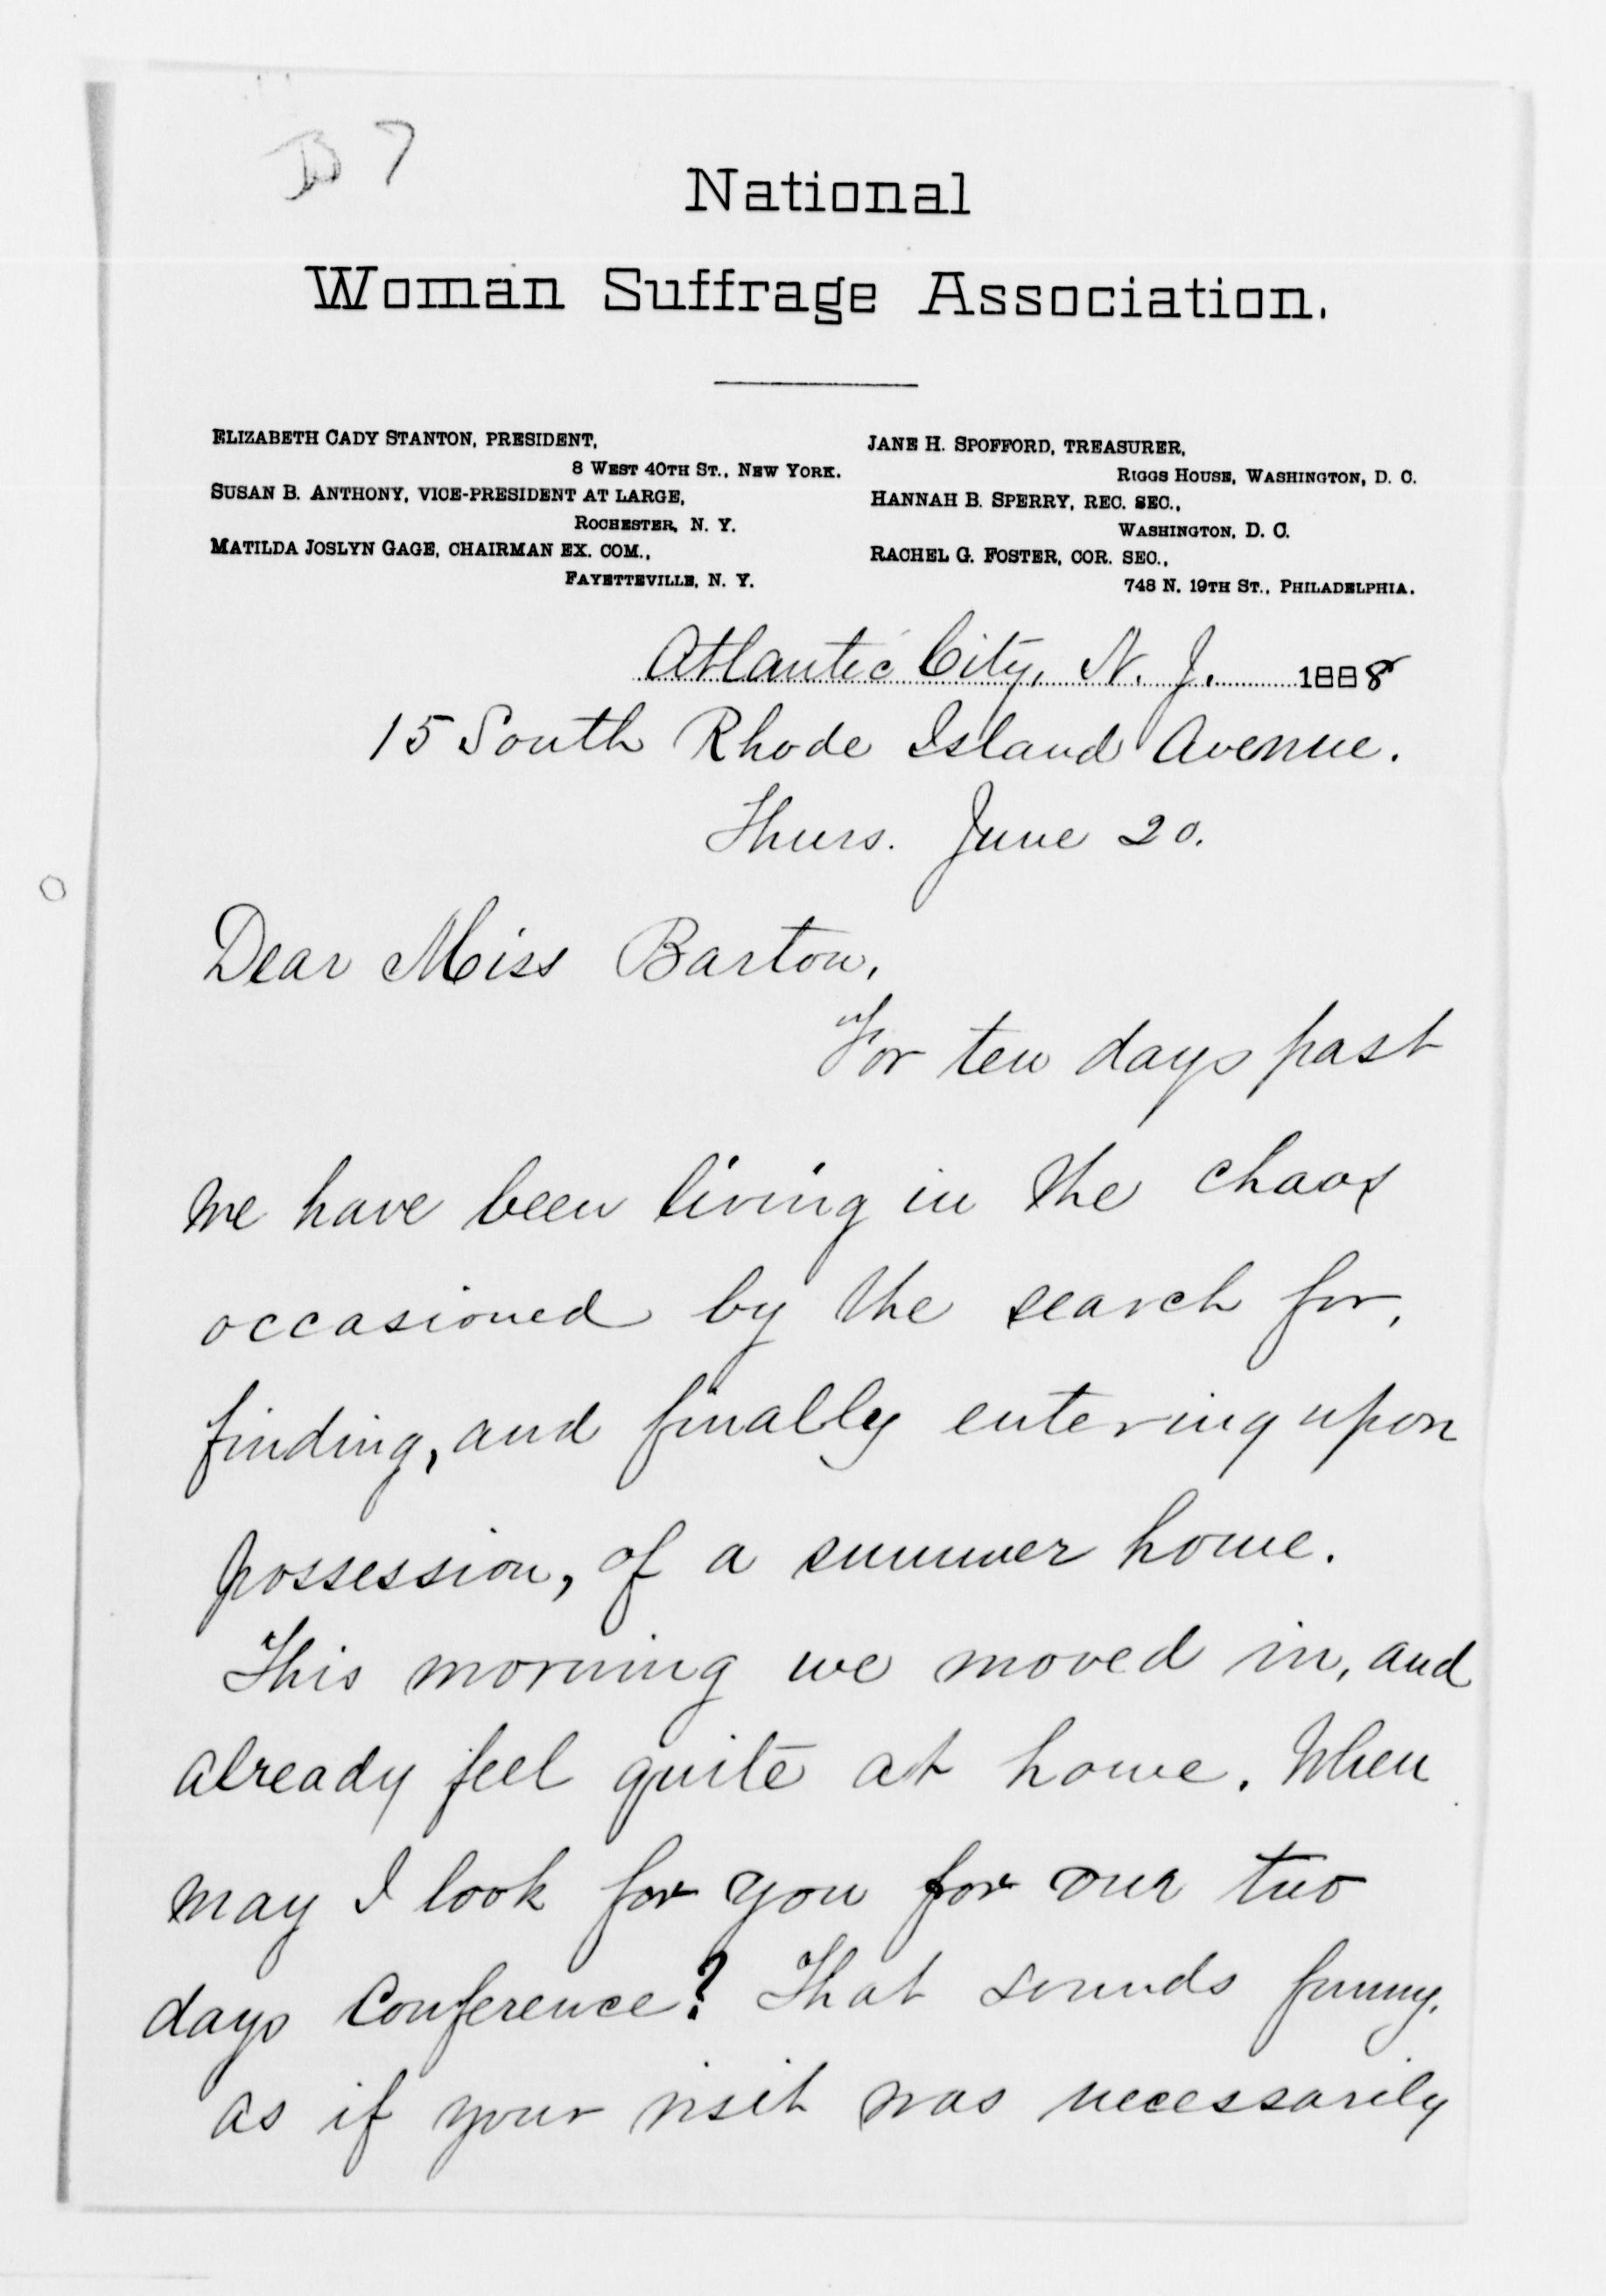 B 7
National
Woman Suffrage Association.
ELIZABETH CADY STANTON, PRESIDENT,
8 WEST 40TH ST., NEW YORK.
SUSAN B. ANTHONY, VICE-PRESIDENT AT LARGE,
ROCHESTER, N. Y.
MATILDA JOSLYN GAGE, CHAIRMAN EX. COM.,
FAYETTEVILLE, N. Y.
JANE H. SPOFFORD, TREASURER,
RIGGS HOUSE, WASHINGTON, D. C.
HANNAH B. SPERRY, REC. SEC.,
WASHINGTON, D. C.
RACHEL G. FOSTER, COR. SEC.,
748 N. 19TH ST., PHILADELPHIA.
Atlantic City, N. J. 1888
15 South Rhode Island Avenue.
Thurs. June 20.
Dear Miss Barton,
For ten days past
we have been living in the chaos
occasioned by the search for,
finding, and finally entering upon
possession, of a summer home.
This morning we moved in, and
already feel quite at home. When
may I look for you for our two
days Conference? That sounds funny,
as if your visit was necessarily